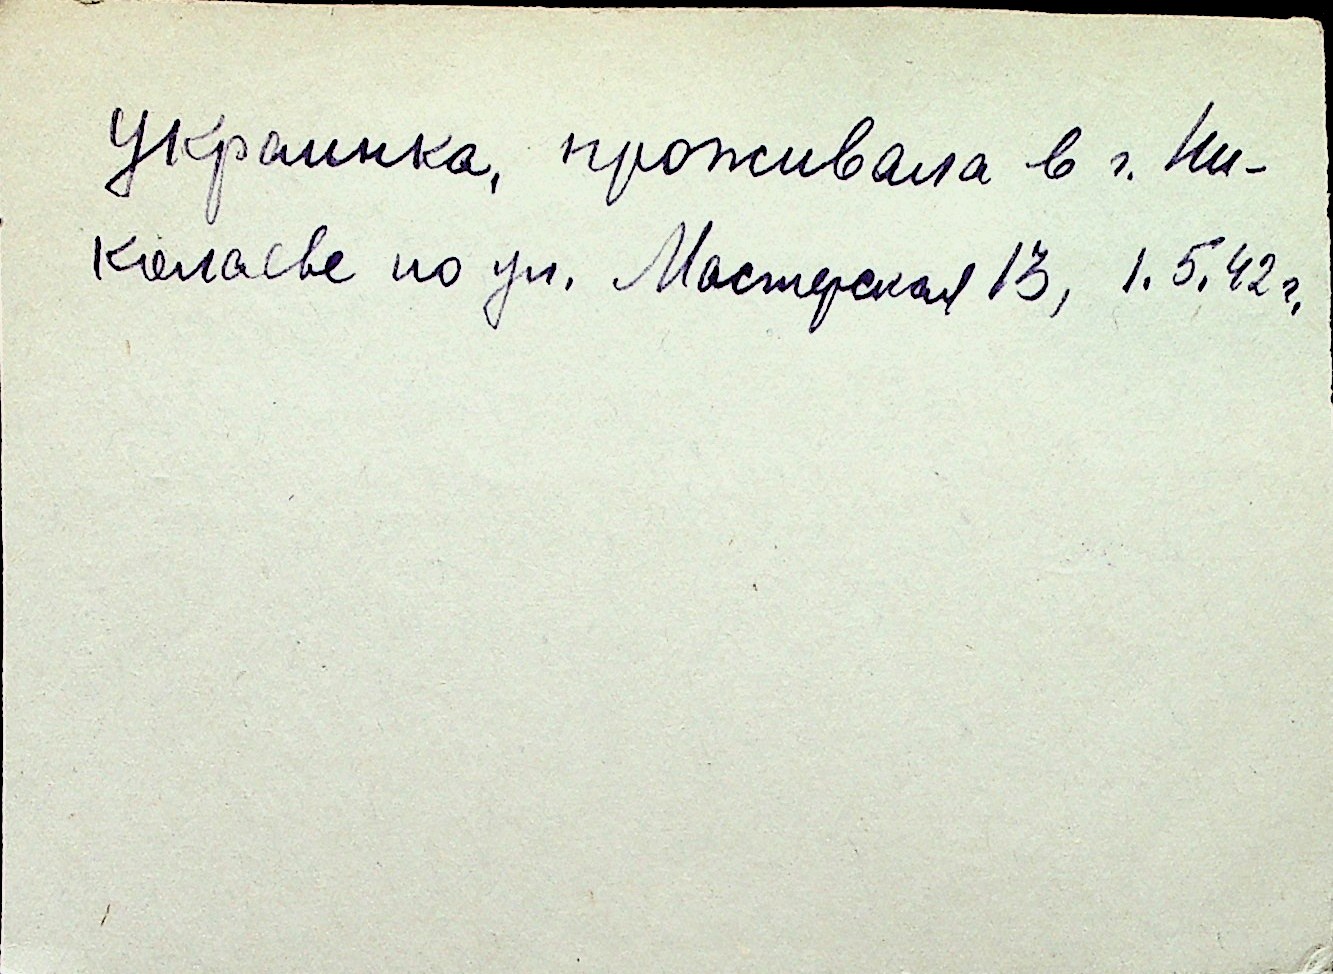 Украинка, проживала в г. Ни-
колаеве по ул. Мастерская 13, 1.5.42 г.